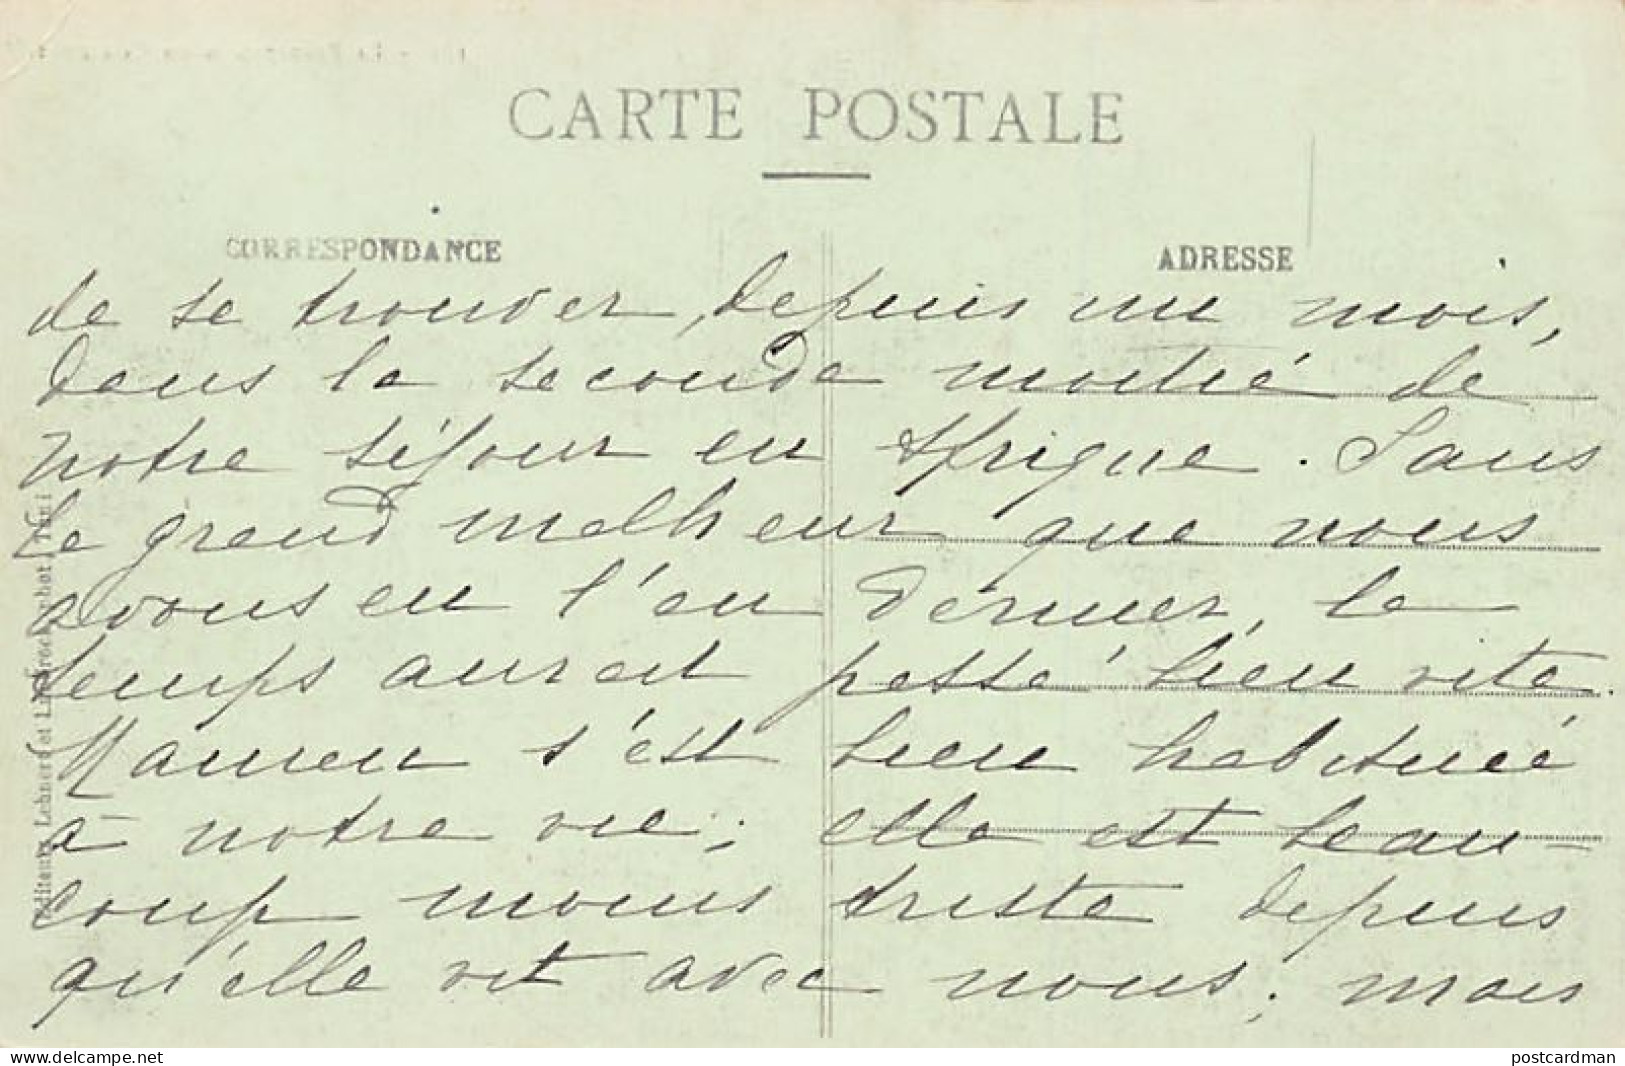 CARTE POSTALE
CORRESPONDANCE
ADRESSE
de se trouver, depuis un mois,
dans la seconde moitié de
notre séjour en Afrique. Sans
le grand malheur que nous
avons eu l'an dernier, le
temps aurait passé bien vite.
Maman s'est bien habituée
à notre vie; elle est beau-
coup moins triste depuis
qu'elle vit avec nous; mais
Editeurs, Lehnert et
delcampe.net
postcardman